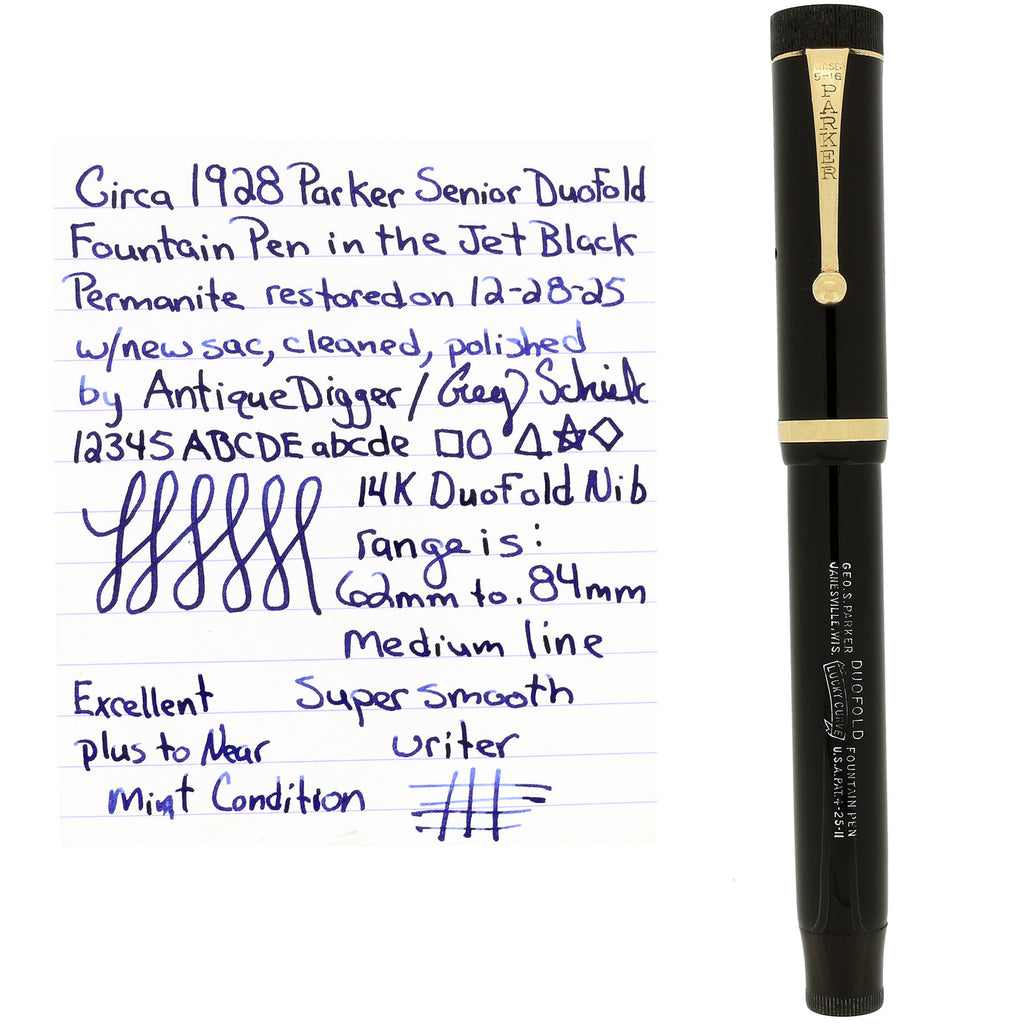 Circa 1928 Parker Senior Duofold
Fountain Pen in the Jet Black
Permanite restored on 12-28-25
w/new sac, cleaned, polished
by AntiqueDigger/Greg
12345 ABCDE abcde
14K Duofold Nib
range is:
62mm to .84mm
Medium line
Excellent
plus to Near
Mint Condition
Super smooth
writer
5-16
PARKER
GEO. S. PARKER DUOFOLD FOUNTAIN PEN
JANESVILLE, WIS. LUCKY CURVE U.S.A. PAT. 4-25-11